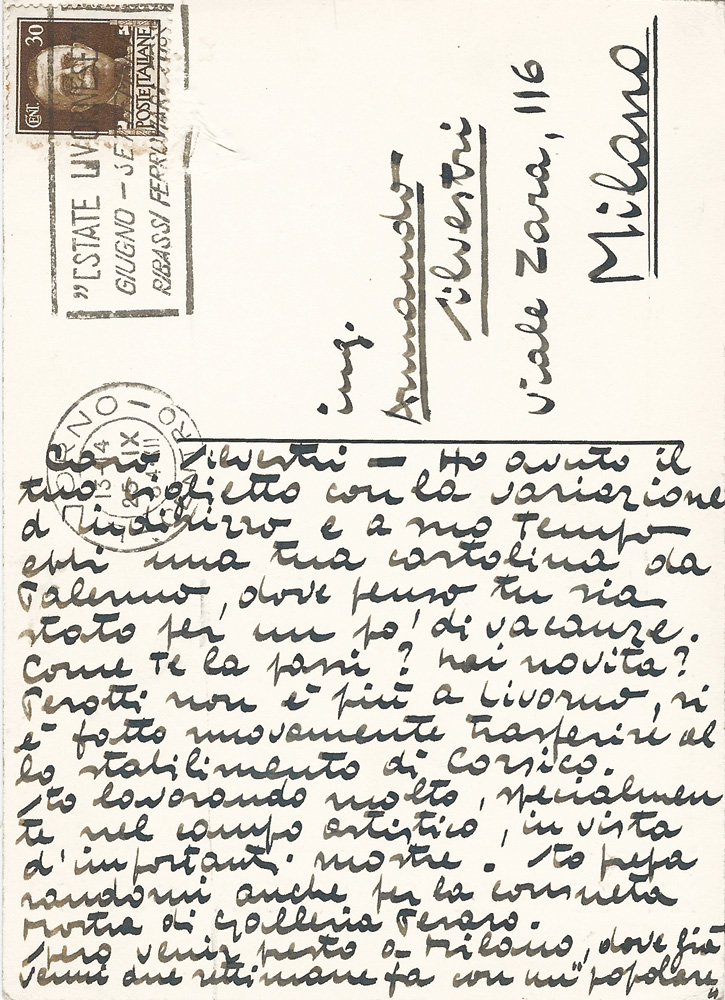 30
CENT.
POSTE ITALIANE
"ESTATE LIVORNESE"
GIUGNO – SE
RIBASSI FERROVIARI
LIVORNO
CENTRO
13-14
25 IX
ing.
Armando
Silvestri
viale Zara, 116
Milano
Caro Silvestri — Ho avuto il
tuo biglietto con la variazione
d'indirizzo e a suo tempo
ebbi una tua cartolina da
Palermo, dove penso tu sia
stato per un po' di vacanze.
Come te la passi? hai novità?
Perotti non è più a Livorno, si
è fatto nuovamente trasferire al
lo stabilimento di Corsico.
Sto lavorando molto, specialmen
te nel campo artistico, in vista
d'importanti mostre. Sto prepa
randomi anche per la consueta
mostra di Galleria Pesaro.
Spero venir presto a Milano, dove già
venni due settimane fa con un "popolare"